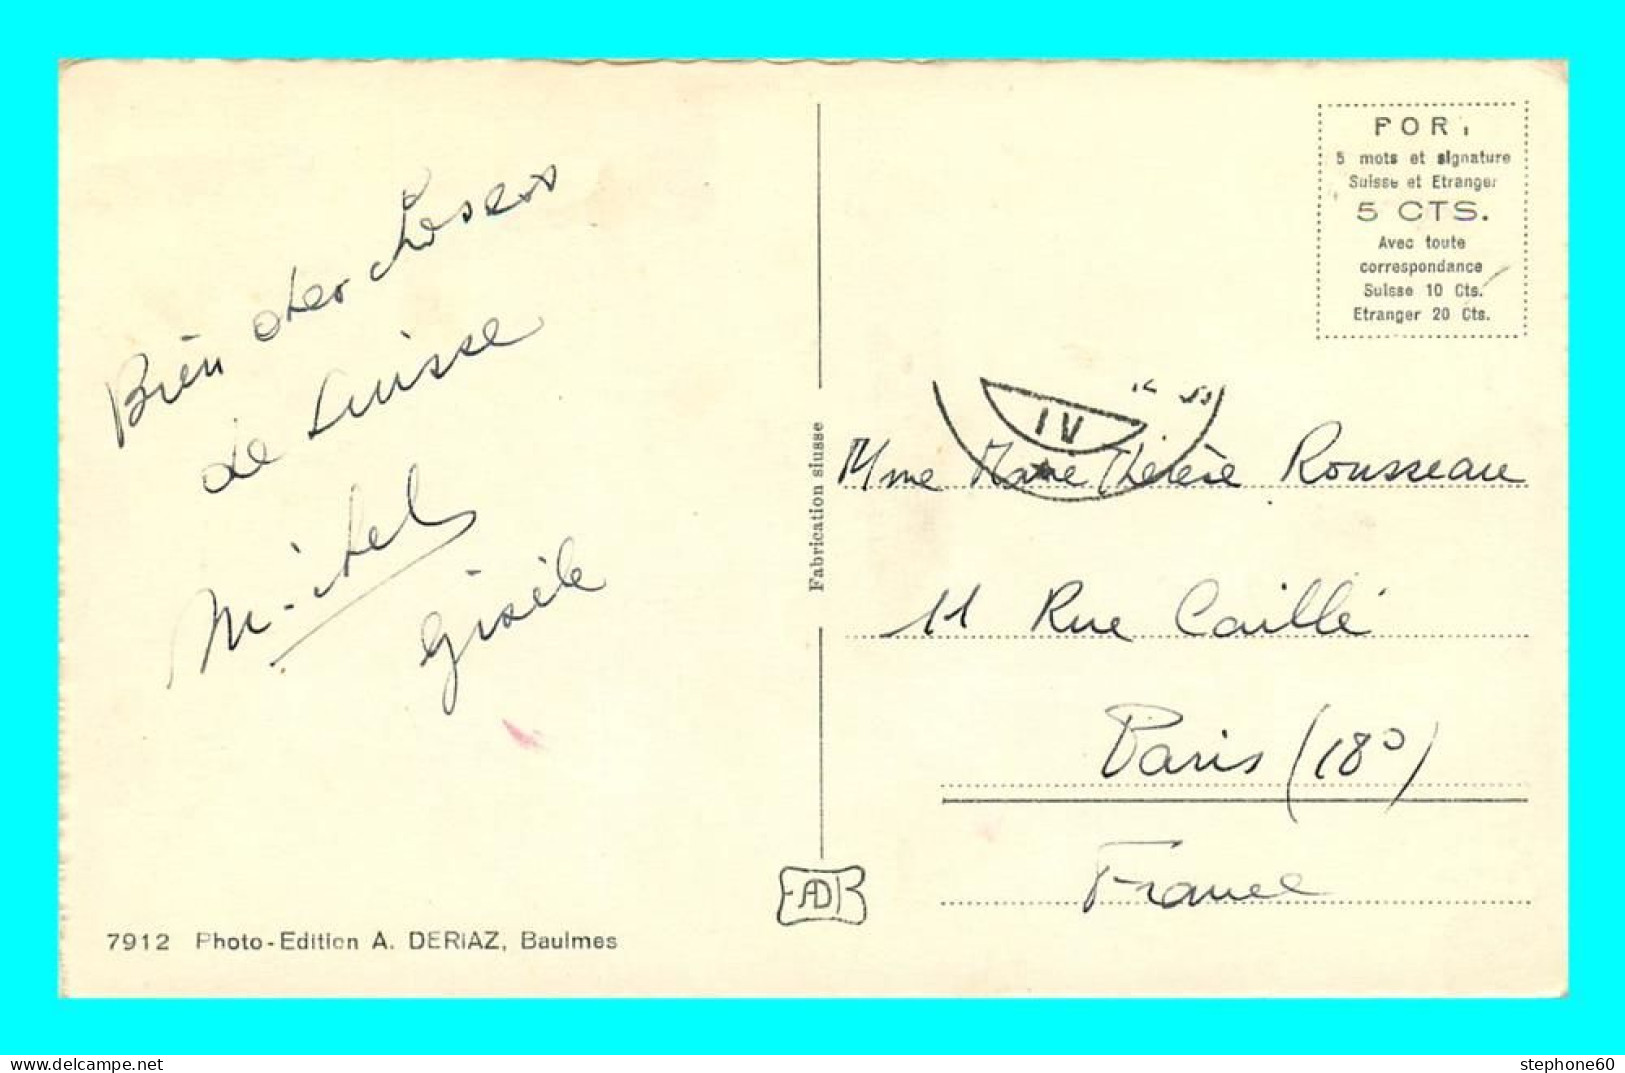 Bien cher
de Suisse
Michel
Gisèle
7912 Photo-Edition A. DERIAZ, Baulmes
Fabrication siusse
PORT
5 mots et signature
Suisse et Etranger
5 CTS.
Avec toute
correspondance
Suisse 10 Cts.
Etranger 20 Cts.
IV
Mme Marie Thérèse Rousseau
11 Rue Caillé
Paris (18°)
France
stephone60